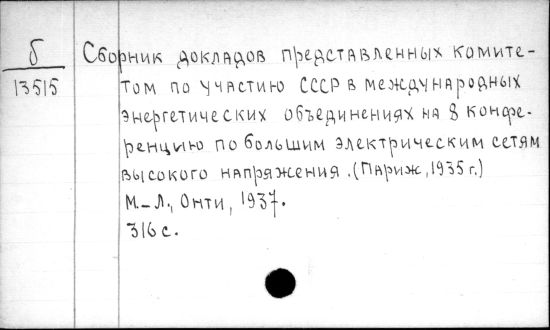 б
13515
Сборник докладов представленных комите-
том по участию СССР в международных
энергетических объединениях на 8 конфе-
ренцию по большим электрическим сетям
высокого напряжения. (Париж, 1935 г.)
М.-Л., Онти, 1937.
316 с.